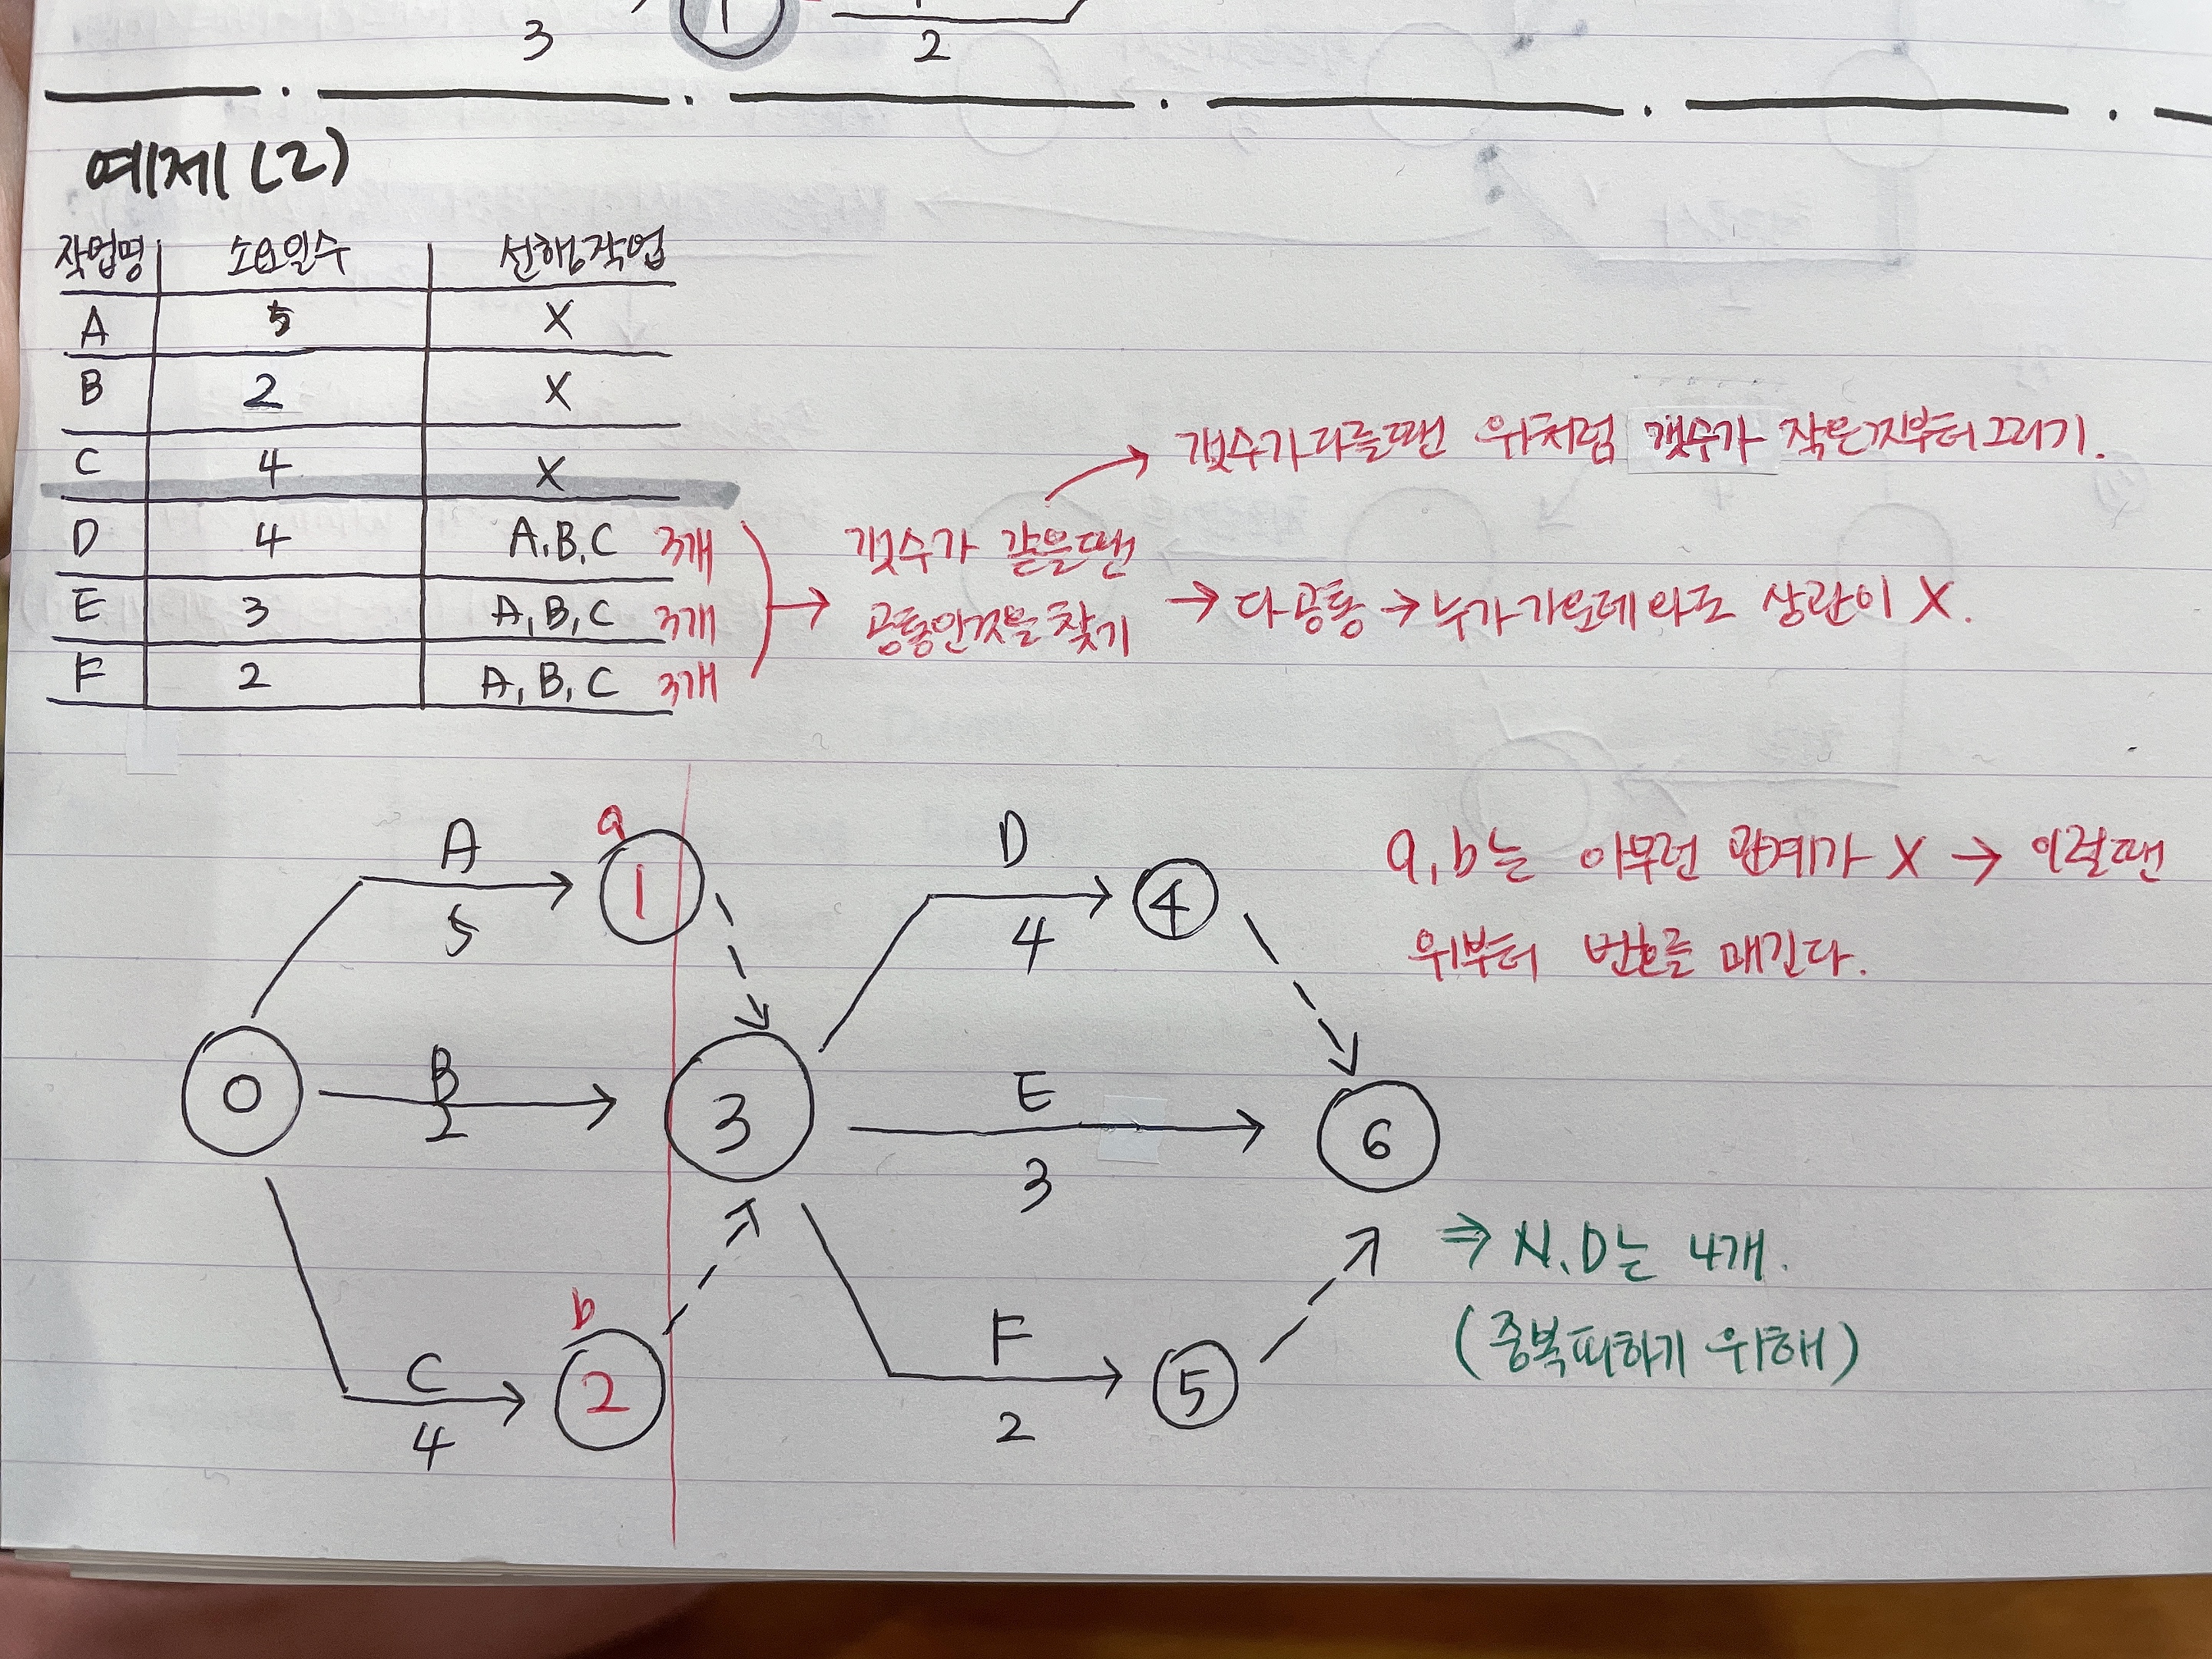 3
1
2
예제(2)
작업명 소요일수 선행작업
A 5 X
B 2 X
C 4 X
D 4 A,B,C 3개
E 3 A,B,C 3개
F 2 A,B,C 3개
→ 갯수가 다를땐 위처럼 갯수가 작은것부터 그리기.
→ 갯수가 같을땐
공통인것을 찾기 → 다 공통 → 누가 가운데 와도 상관이 X.
A
5
a
1
D
4
4
a, b는 아무런 관계가 X → 이럴땐
위부터 번호를 매긴다.
0
B
2
3
E
3
6
⇒ N.D는 4개.
(중복피하기 위해)
C
4
b
2
F
2
5